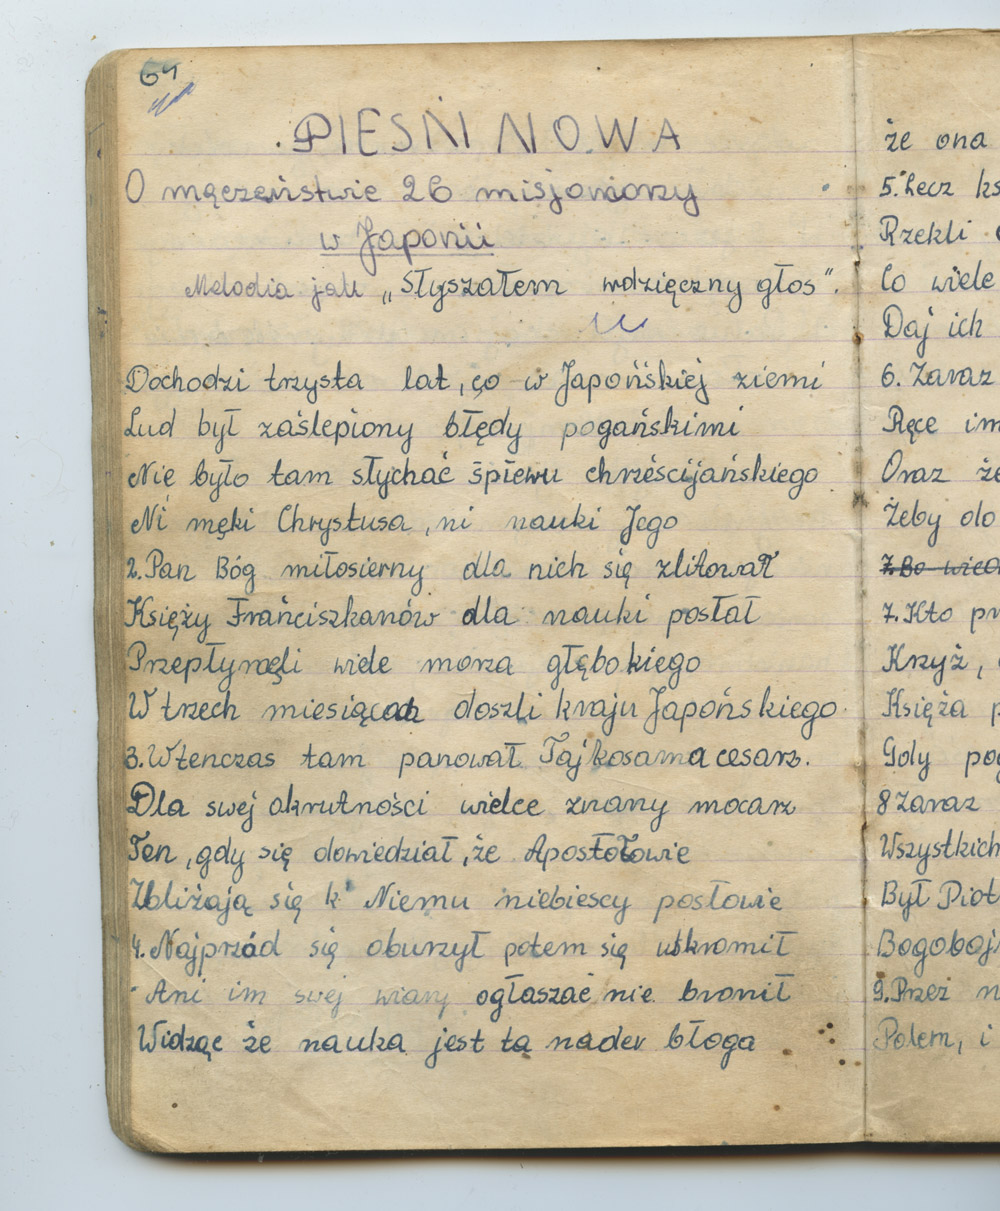 64
PIEŚŃ NOWA
O męczeństwie 26 misjonarzy
w Japonii
Melodia jak „Słyszałem wdzięczny głos".
Dochodzi trzysta lat, co w Japońskiej ziemi
Lud był zaślepiony błędy pogańskimi
Nie było tam słychać śpiewu chrześcijańskiego
Ni męki Chrystusa, ni nauki Jego
2. Pan Bóg miłosierny dla nich się zlitował
Księży Frańciszkanów dla nauki posłał
Przepłynęli wiele morza głębokiego
W trzech miesiącach doszli kraju Japońskiego.
3. Wtenczas tam panował Tajkosama cesarz.
Dla swej okrutności wielce znany mocarz
Ten, gdy się dowiedział, że Apostołowie
Zbliżają się k' Niemu niebiescy posłowie
4. Najprzód się oburzył potem się uskromił
Ani im swej wiary ogłaszać nie bronił
Widząc że nauka jest ta nader błoga
że ona
5. Lecz ks
Rzekli
Co wiele
Daj ich
6. Zaraz
Ręce im
Oraz że
Żeby do
7. Bo
7. Kto pr
Krzyż,
Księża p
Gdy pog
8 Zaraz
Wszystkich
Był Piot
Bogoboj
9. Przez n
Potem, i